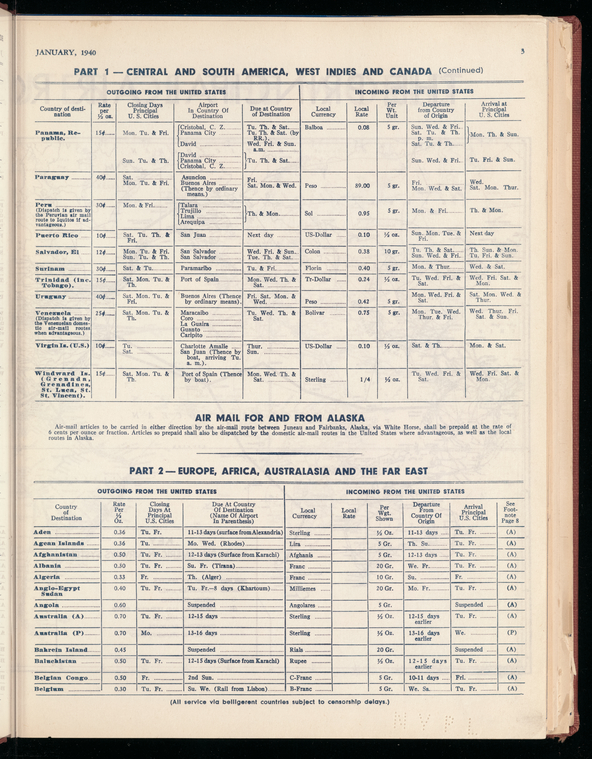 JANUARY, 1940 5
PART 1 — CENTRAL AND SOUTH AMERICA, WEST INDIES AND CANADA (Continued)
OUTGOING FROM THE UNITED STATES INCOMING FROM THE UNITED STATES
Country of desti-nation Rate per ½ oz. Closing Days Principal U. S. Cities Airport In Country Of Destination Due at Country of Destination Local Currency Local Rate Per Wt. Unit Departure from Country of Origin Arrival at Principal U. S. Cities
Panama, Re-public. 15¢ Mon. Tu. & Fri. Cristobal, C. Z. Panama City David Tu. Th. & Sat. Tu. Th. & Sat. (by RR.). Wed. Fri. & Sun. a.m. Balboa 0.08 5 gr. Sun. Wed. & Fri. Sat. Tu. & Th. p. m. Sat. Tu. & Th. Mon. Th. & Sun.
Sun. Tu. & Th. David Panama City Cristobal, C. Z. Tu. Th. & Sat. Sun. Wed. & Fri. Tu. Fri. & Sun.
Paraguay 40¢ Sat. Mon. Tu. & Fri. Asuncion Buenos Aires (Thence by ordinary means.) Fri. Sat. Mon. & Wed. Peso 89.00 5 gr. Fri. Mon. Wed. & Sat. Wed. Sat. Mon. Thur.
Peru (Dispatch is given by the Peruvian air mail route to Iquitos if ad-vantageous.) 30¢ Mon. & Fri. Talara Trujillo Lima Arequipa Th. & Mon. Sol 0.95 5 gr. Mon. & Fri. Th. & Mon.
Puerto Rico 10¢ Sat. Tu. Th. & Fri. San Juan Next day US-Dollar 0.10 ½ oz. Sun. Mon. Tue. & Fri. Next day
Salvador, El 12¢ Mon. Tu. & Fri. Sun. Tu. & Th. San Salvador San Salvador Wed. Fri. & Sun. Tue. Th. & Sat. Colon 0.38 10 gr. Tu. Th. & Sat. Sun. Wed. & Fri. Th. Sun. & Mon. Tu. Fri. & Sun.
Surinam 30¢ Sat. & Tu. Paramaribo Tu. & Fri. Florin 0.40 5 gr. Mon. & Thur. Wed. & Sat.
Trinidad (Inc. Tobago) 15¢ Sat. Mon. Tu. & Th. Port of Spain Mon. Wed. Th. & Sat. Tr-Dollar 0.24 ½ oz. Tu. Wed. Fri. & Sat. Wed. Fri. Sat. & Mon.
Uruguay 40¢ Sat. Mon. Tu. & Fri. Buenos Aires (Thence by ordinary means). Fri. Sat. Mon. & Wed. Peso 0.42 5 gr. Mon. Wed. Fri. & Sat. Sat. Mon. Wed. & Thur.
Venezuela (Dispatch is given by the Venezuelan domes-tic air-mail routes when advantageous.) 25¢ Sat. Mon. Tu. & Th. Maracaibo Coro La Guaira Guanto Caripito Tu. Wed. Th. & Sat. Bolivar 0.75 5 gr. Mon. Tue. Wed. Thur. & Fri. Wed. Thur. Fri. Sat. & Sun.
Virgin Is. (U.S.) 10¢ Tu. Sat. Charlotte Amalie San Juan (Thence by boat, arriving Tu. a. m.). Thur. Sun. US-Dollar 0.10 ½ oz. Sat. & Th. Mon. & Sat.
Windward Is. (Grenada, Grenadines, St. Luca, St. St. Vincent). 15¢ Sat. Mon. Tu. & Th. Port of Spain (Thence by boat). Mon. Wed. Th. & Sat. Sterling 1/4 ½ oz. Tu. Wed. Fri. & Sat. Wed. Fri. Sat. & Mon.
AIR MAIL FOR AND FROM ALASKA
Air-mail articles to be carried in either direction by the air-mail route between Juneau and Fairbanks, Alaska, via White Horse, shall be prepaid at the rate of
6 cents per ounce or fraction. Articles so prepaid shall also be dispatched by the domestic air-mail routes in the United States where advantageous, as well as the local
routes in Alaska.
PART 2—EUROPE, AFRICA, AUSTRALASIA AND THE FAR EAST
OUTGOING FROM THE UNITED STATES INCOMING FROM THE UNITED STATES
Country of Destination Rate Per ½ Oz. Closing Days At Principal U.S. Cities Due At Country Of Destination (Name Of Airport In Parenthesis) Local Currency Local Rate Per Wgt. Shown Departure From Country Of Origin Arrival Principal U.S. Cities See Foot-note Page 8
Aden 0.36 Tu. Fr. 11-13 days (surface from Alexandria) Sterling ½ Oz. 11-13 days Tu. Fr. (A)
Agean Islands 0.36 Tu. Mo. Wed. (Rhodes) Lira 5 Gr. Th. Su. Tu. Fr. (A)
Afghanistan 0.50 Tu. Fr. 12-13 days (Surface from Karachi) Afghanis 5 Gr. 12-13 days Tu. Fr. (A)
Albania 0.30 Tu. Fr. Su. Fr. (Tirana) Franc 20 Gr. We. Fr. Tu. Fr. (A)
Algeria 0.35 Fr. Th. (Alger) Franc 10 Gr. Su. Fr. (A)
Anglo-Egypt Sudan 0.40 Tu. Fr. Tu. Fr.—8 days (Khartoum) Milliemes 20 Gr. Mo. Fr. Tu. Fr. (A)
Angola 0.60 Suspended Angolares 5 Gr. Suspended (A)
Australia (A) 0.70 Tu. Fr. 12-15 days Sterling ½ Oz. 12-15 days earlier Tu. Fr. (A)
Australia (P) 0.70 Mo. 13-16 days Sterling ½ Oz. 13-16 days earlier We. (P)
Bahrein Island 0.45 Suspended Rials 20 Gr. Suspended (A)
Baluchistan 0.50 Tu. Fr. 12-15 days (Surface from Karachi) Rupee ½ Oz. 12-15 days earlier Tu. Fr. (A)
Belgian Congo 0.50 Fr. 2nd Sun. C-Franc 5 Gr. 10-11 days Fri. (A)
Belgium 0.30 Tu. Fr. Su. We. (Rail from Lisbon) B-Franc 5 Gr. We. Sa. Tu. Fr. (A)
(All service via belligerent countries subject to censorship delays.)